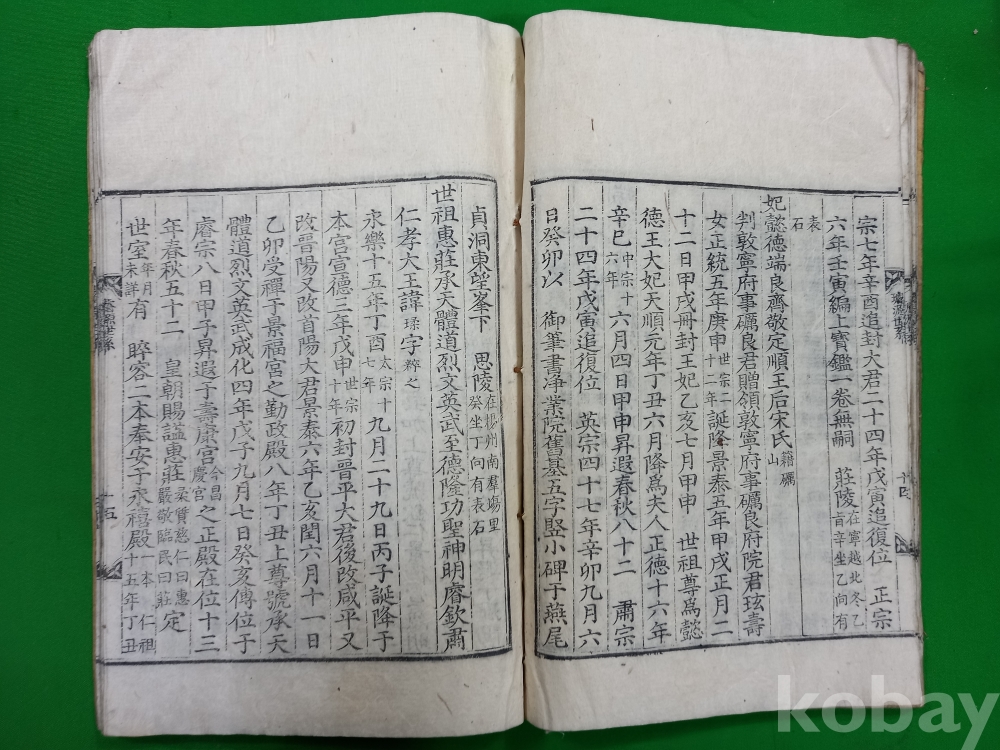 宗七年辛酉追封大君二十四年戊寅追復位 正宗
六年壬寅編上寶鑑一卷無嗣 莊陵在寧越北冬乙旨辛坐乙向有
表石
妃懿德端良齊敬定順王后宋氏籍礪山
判敦寧府事礪良君贈領敦寧府事礪良府院君玹壽
女正統五年庚申世宗二十二年誕降景泰五年甲戌正月二
十二日甲戌冊封王妃乙亥七月甲申 世祖尊為懿
德王大妃天順元年丁丑六月降為夫人正德十六年
辛巳中宗十六年六月四日甲申昇遐春秋八十二 肅宗
二十四年戊寅追復位 英宗四十七年辛卯九月六
日癸卯以 御筆書淨業院舊基五字竪小碑于燕尾
十四
貞洞東望峯下 思陵在楊州南羣場里癸坐丁向有表石
世祖惠莊承天體道烈文英武至德隆功聖神明睿欽肅
仁孝大王諱瑈字粹之
永樂十五年丁酉太宗十七年九月二十九日丙子誕降于
本宮宣德三年戊申世宗十年初封晉平大君後改咸平又
改晉陽又改首陽大君景泰六年乙亥閏六月十一日
乙卯受禪于景福宮之勤政殿八年丁丑上尊號承天
體道烈文英武成化四年戊子九月七日癸亥傳位于
睿宗八日甲子昇遐于壽康宮今昌慶宮之正殿在位十三
年春秋五十二 皇朝賜謚惠莊柔質慈仁曰惠嚴敬臨民曰莊定
世室年月未詳有 睟容二本奉安于永禧殿一本仁祖十五年丁丑
璿源世系
十五
kobay